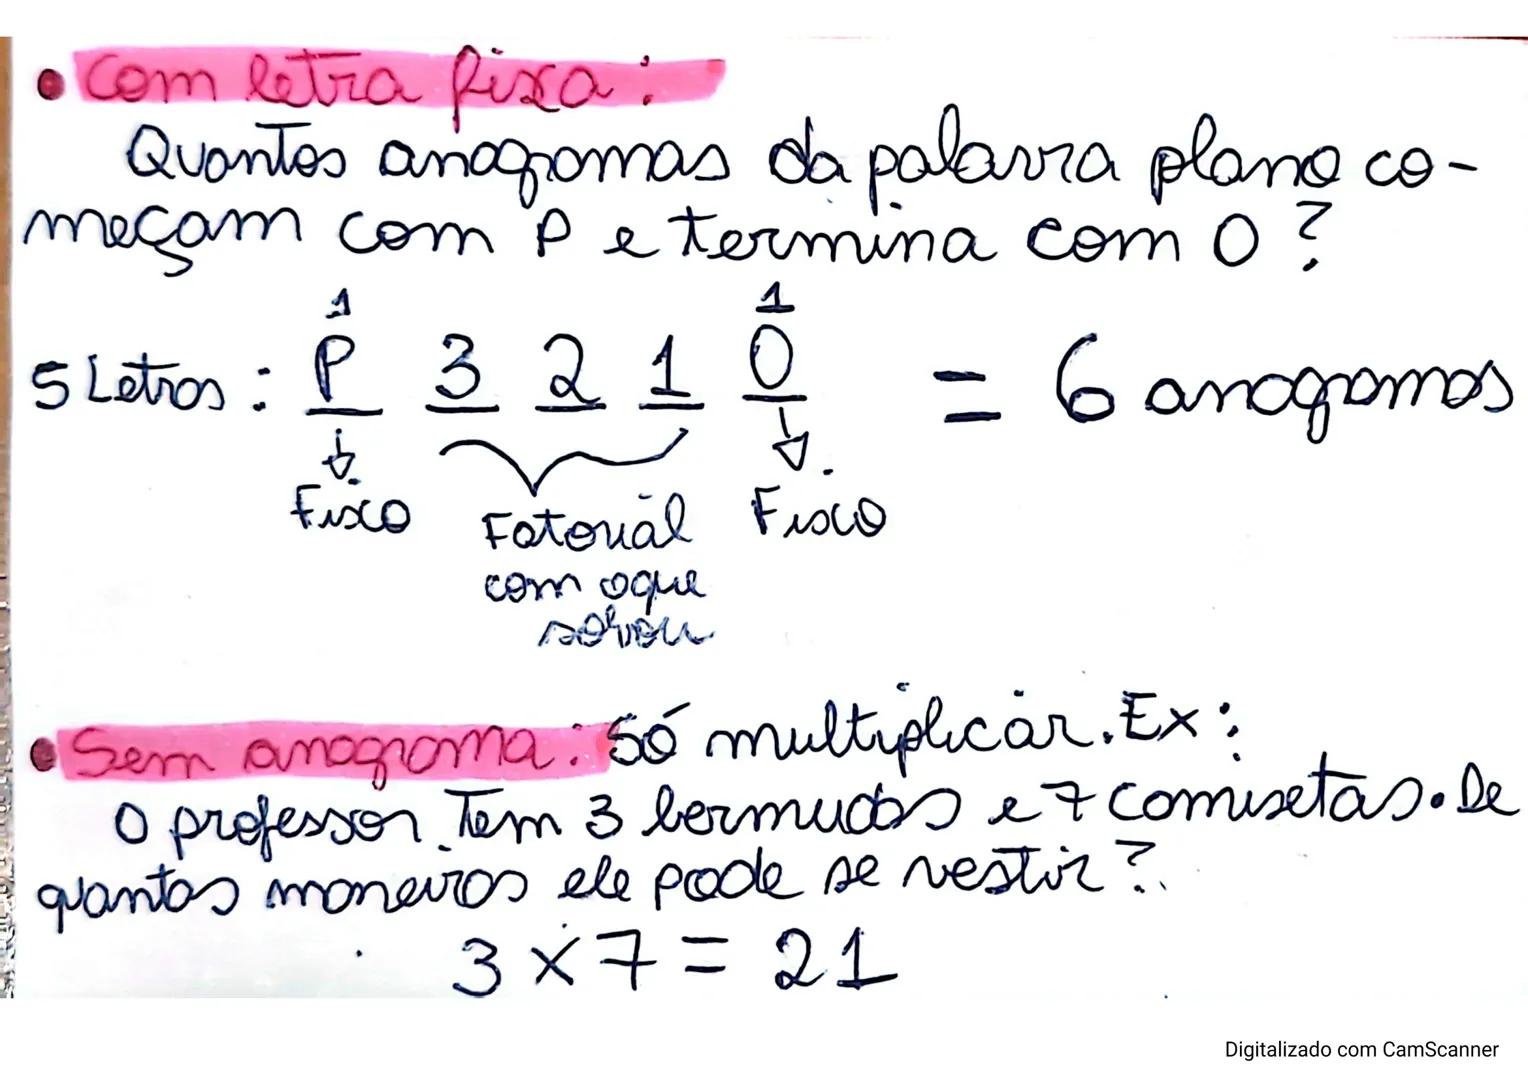 • Com letra fixa:
Quantos anagramas da palavra plano co-
meçam com P e termina com O?
1 1
5 Letras: P 3 2 1 O = 6 anagramas
Fixo Fatorial Fixo
com o que
sobrou
• Sem anagrama: Só multiplicar. Ex:
O professor tem 3 bermudas e 7 camisetas. De
quantas maneiras ele pode se vestir?
3 x 7 = 21
Digitalizado com CamScanner